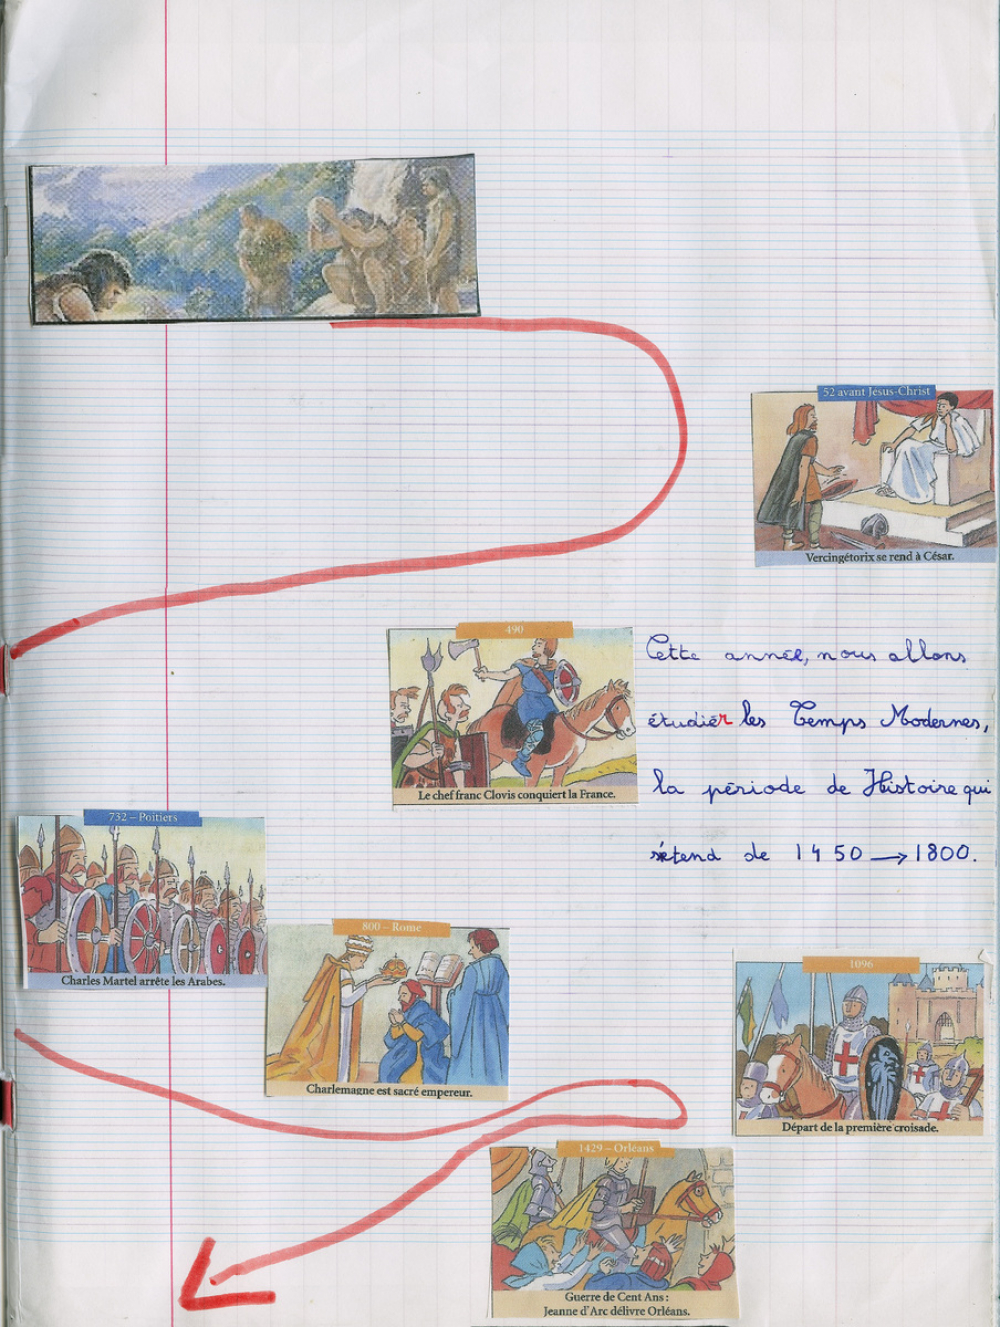 52 avant Jésus-Christ
Vercingétorix se rend à César.
490
Le chef franc Clovis conquiert la France.
Cette année, nous allons
étudier les Temps Modernes,
la période de Histoire qui
s'étend de 1450 → 1800.
732 – Poitiers
Charles Martel arrête les Arabes.
800 – Rome
Charlemagne est sacré empereur.
1096
Départ de la première croisade.
1429 – Orléans
Guerre de Cent Ans :
Jeanne d'Arc délivre Orléans.